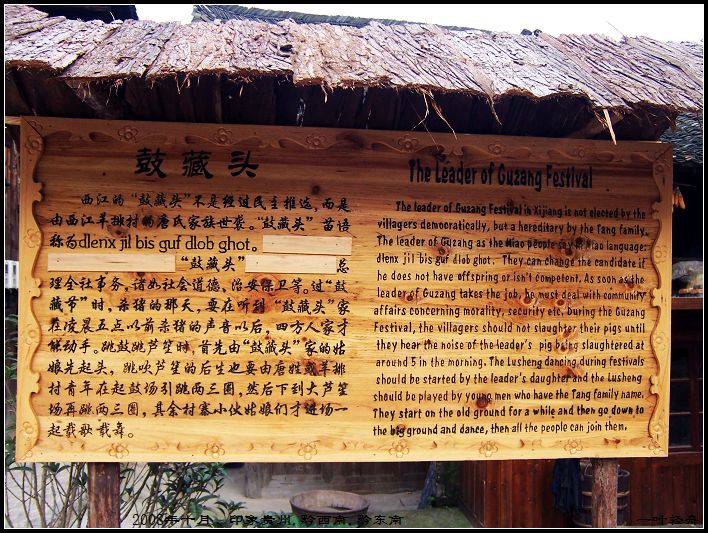 鼓藏头
西江的“鼓藏头”不是经过民主推选，而是
由西江羊排村的唐氏家族世袭。“鼓藏头”苗语
称为dlenx jil bis guf dlob ghot。
“鼓藏头” 总
理全社事务，诸如社会道德、治安保卫等。过“鼓
藏节”时，杀猪的那天，要在听到“鼓藏头”家
在凌晨五点以前杀猪的声音以后，四方人家才
能动手。跳鼓跳芦笙时，首先由“鼓藏头”家的姑
娘先起头，跳吹芦笙的后生也要由唐姓或羊排
村青年在起鼓场引跳两三圈，然后下到大芦笙
场再跳两三圈，其余村寨小伙姑娘们才进场一
起载歌载舞。
The Leader of Guzang Festival
The leader of Guzang Festival in Xijiang is not elected by the
villagers democratically, but a hereditary by the Tang family.
The leader of Guzang as the Miao people say in Miao language:
dlenx jil bis guf dlob ghot. They can change the candidate if
he does not have offspring or isn't competent. As soon as the
leader of Guzang takes the job, he must deal with community
affairs concerning morality, security etc. During the Guzang
Festival, the villagers should not slaughter their pigs until
they hear the noise of the leader's pig being slaughtered at
around 5 in the morning. The Lusheng dancing during festivals
should be started by the leader's daughter and the Lusheng
should be played by young men who have the Tang family name.
They start on the old ground for a while and then go down to
the big ground and dance, then all the people can join them.
2008年十月 印象贵州.黔西南.黔东南
一叶轻舟